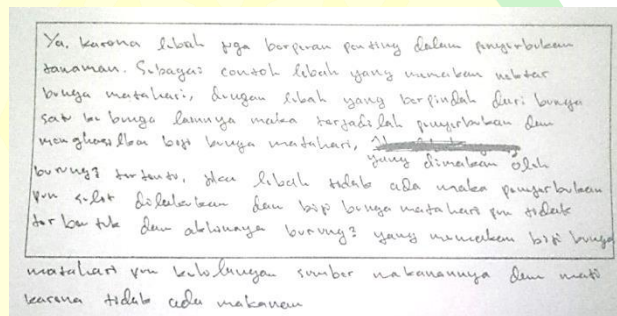 Ya, karena lebah juga berperan penting dalam penyerbukan
tanaman. Sebagai contoh lebah yang memakan nektar
bunga matahari, dengan lebah yang berpindah dari bunga
satu ke bunga lainnya maka terjadilah penyerbukan dan
menghasilkan biji bunga matahari, yang dimakan oleh
burung² tertentu, jika lebah tidak ada maka penyerbukan
pun sulit dilakukan dan biji bunga matahari pun tidak
terbentuk dan akhirnya burung² yang memakan biji bunga
matahari pun kehilangan sumber makanannya dan mati
karena tidak ada makanan